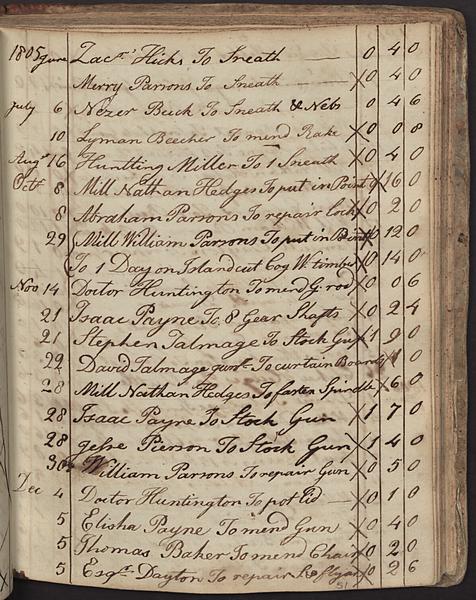 1805 June Zacr' Hicks To Sneath 0 4 0
Merry Parsons To Sneath X 0 4 0
July 6 Nezer Beck To Sneath & Nebs 0 4 6
10 Lyman Beecher To mend Rake X 0 0 8
Augt 16 Huntting Miller To 1 Sneath X 0 4 0
Octr 8 Mill Nathan Hedges To put in Point X 16 0
8 Abraham Parsons To repair lock X 0 2 0
29 Mill William Parsons To put in X 0 12 0
To 1 Day on Island cut Cog W. timber X 0 14 0
Nov 14 Doctor Huntington To mend G rod X 0 0 6
21 Isaac Payne To 8 Gear Shafts X 0 2 4
21 Stephen Talmage To Stock Gun X 1 9 0
22 David Talmage To curtain Boards X 0
28 Mill Nathan Hedges To fasten Spindle X 6 0
28 Isaac Payne To Stock Gun X 1 7 0
28 Jesse Pierson To Stock Gun X 1 4 0
30 William Parsons To repair Gun X 0 5 0
Dec 4 Doctor Huntington To pot lid X 0 1 0
5 Elisha Payne To mend Gun X 0 4 0
5 Thomas Baker To mend Chair X 0 2 0
5 Esqr Dayton To repair X 0 2 6
51